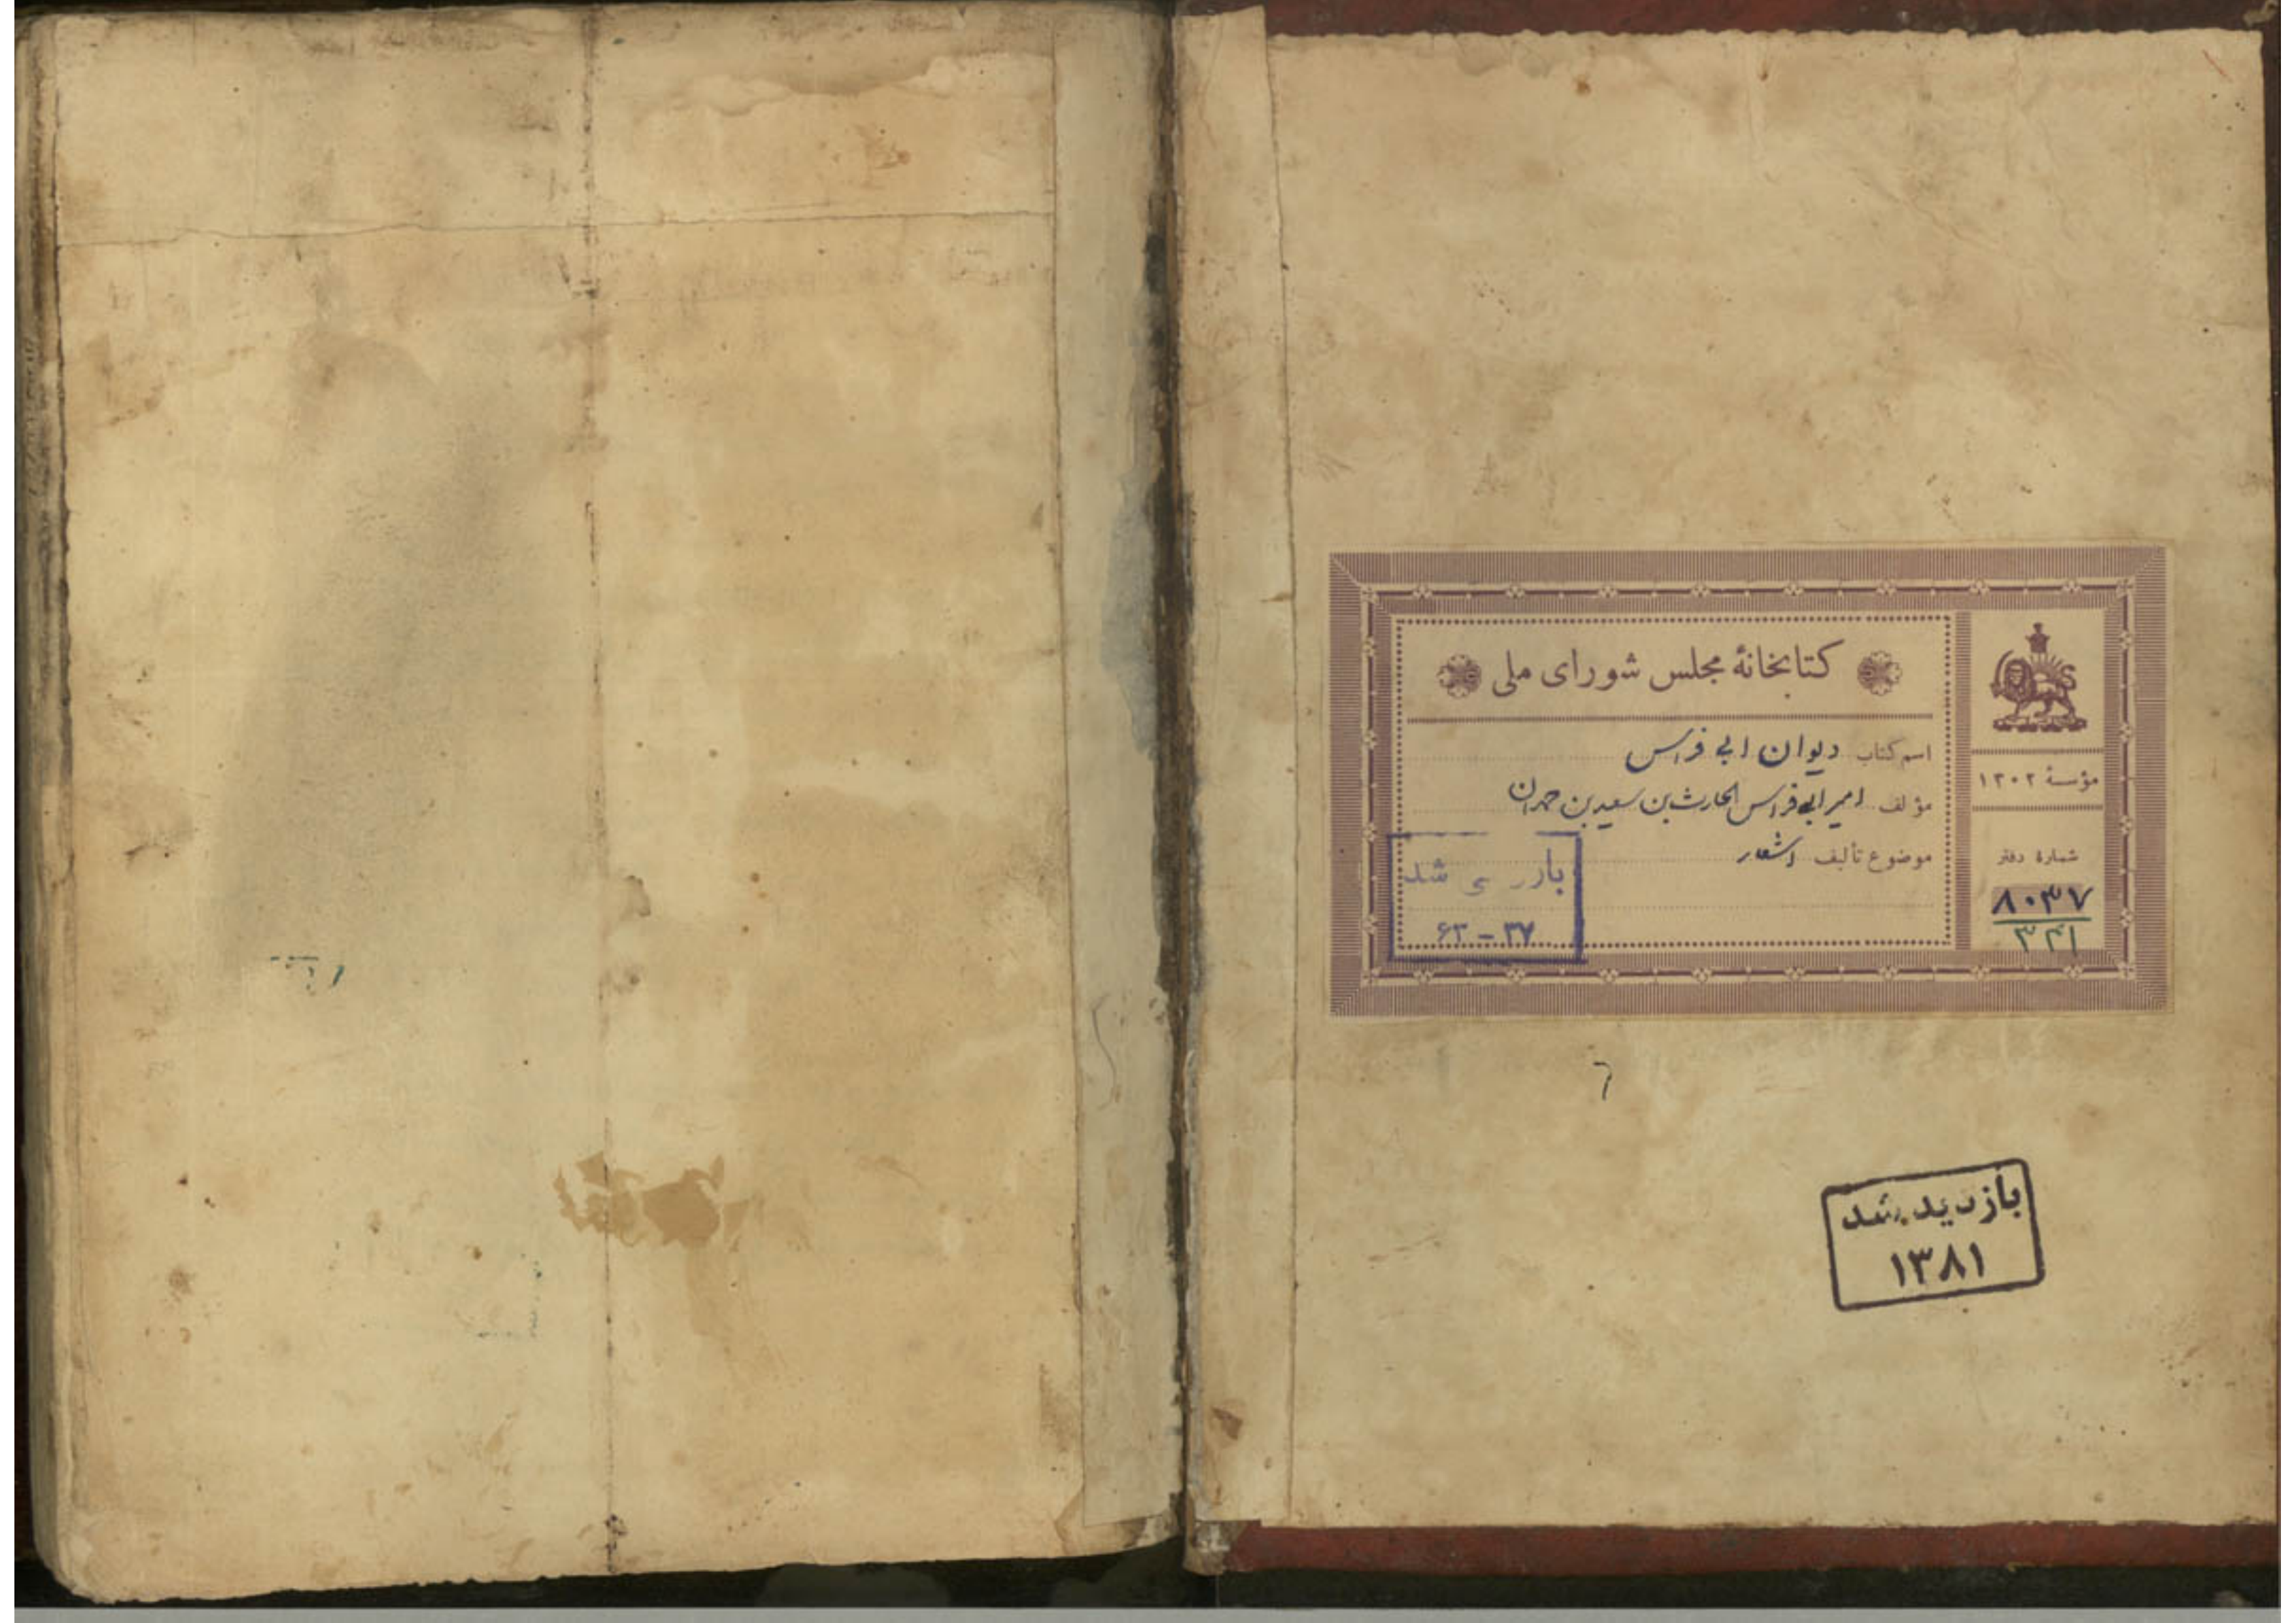 کتابخانهٔ مجلس شورای ملی
اسم کتاب دیوان ابی فراس
مؤلف امیر ابی فراس الحارث بن سعید بن حمدان
موضوع تألیف اشعار
مؤسسهٔ ۱۳۰۲
شمارهٔ دفتر
۸۰۳۷
۳۴۱
بازر سی شد
۶۳ - ۳۷
بازدید شد
۱۳۸۱